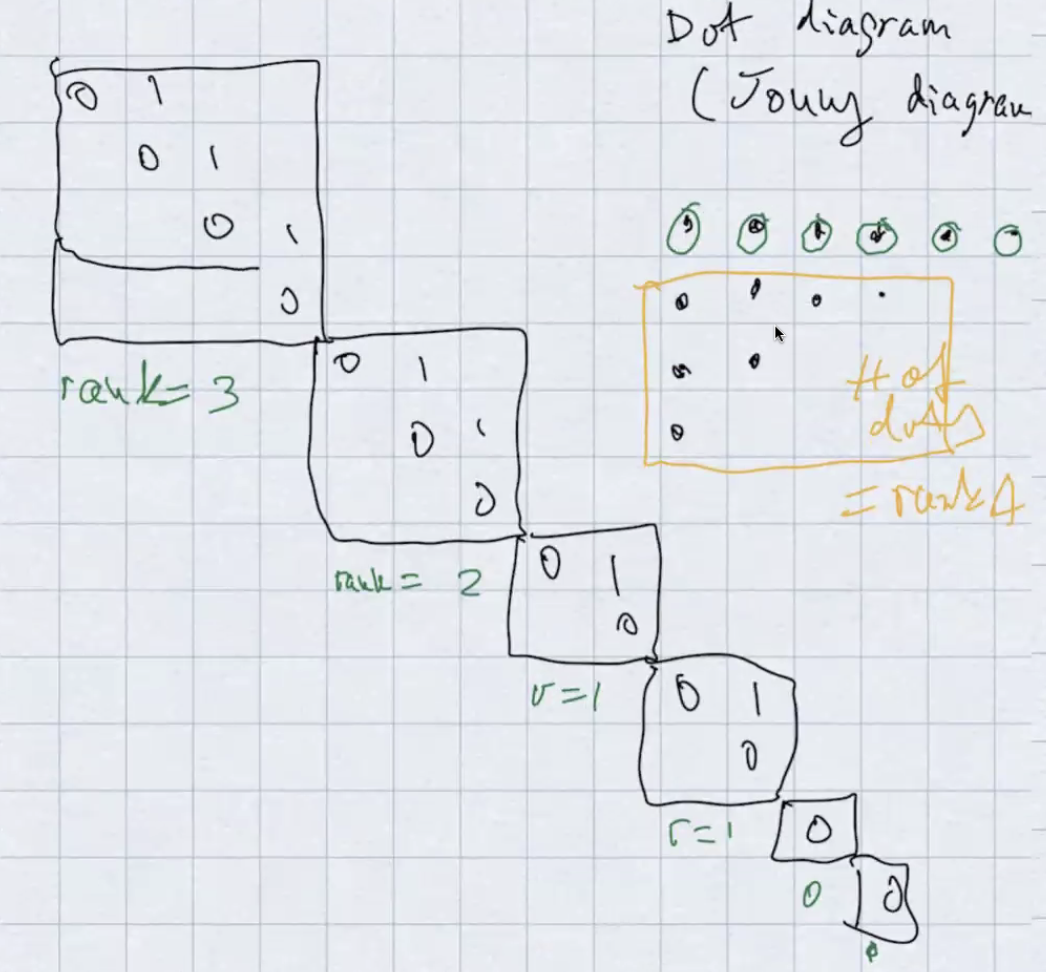 Dot diagram
(Jouny diagram
0 1
0 1
0 1
0
rank = 3
0 1
0 1
0
rank = 2
0 1
0
r = 1
0 1
0
r = 1
0
0
0
# of
dots
= rank A